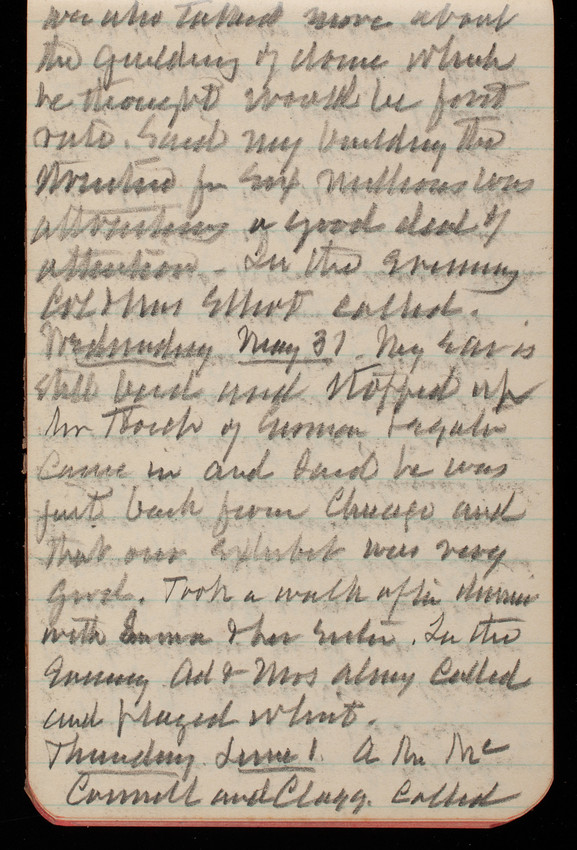 we also talked more about
the guilding of dome which
he thought would be first
rate. Said my building the
structure for Six Millions was
attracting a good deal of
attention - In the Evening
Col & Mrs Elliot called.
Wednesday May 31. My Ear is
still bad and stopped up
Mr of German
came in and said he was
just back from Chicago and
that our Exhibit was very
good. Took a walk after dinner
with Emma & her Sister. In the
Evening & Mrs called
and played whist.
Thursday June 1. A Mr Mc
Connell and Clagg. called